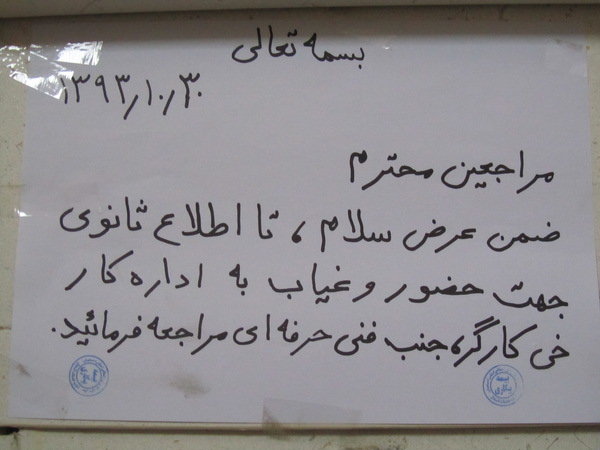 بسمه تعالی
۱۳۹۳/۱۰/۳۰
مراجعین محترم
ضمن عرض سلام ، تا اطلاع ثانوی
جهت حضور و غیاب به اداره کار
خ کارگر، جنب فنی حرفه ای مراجعه فرمائید.
بیمه
بیکاری